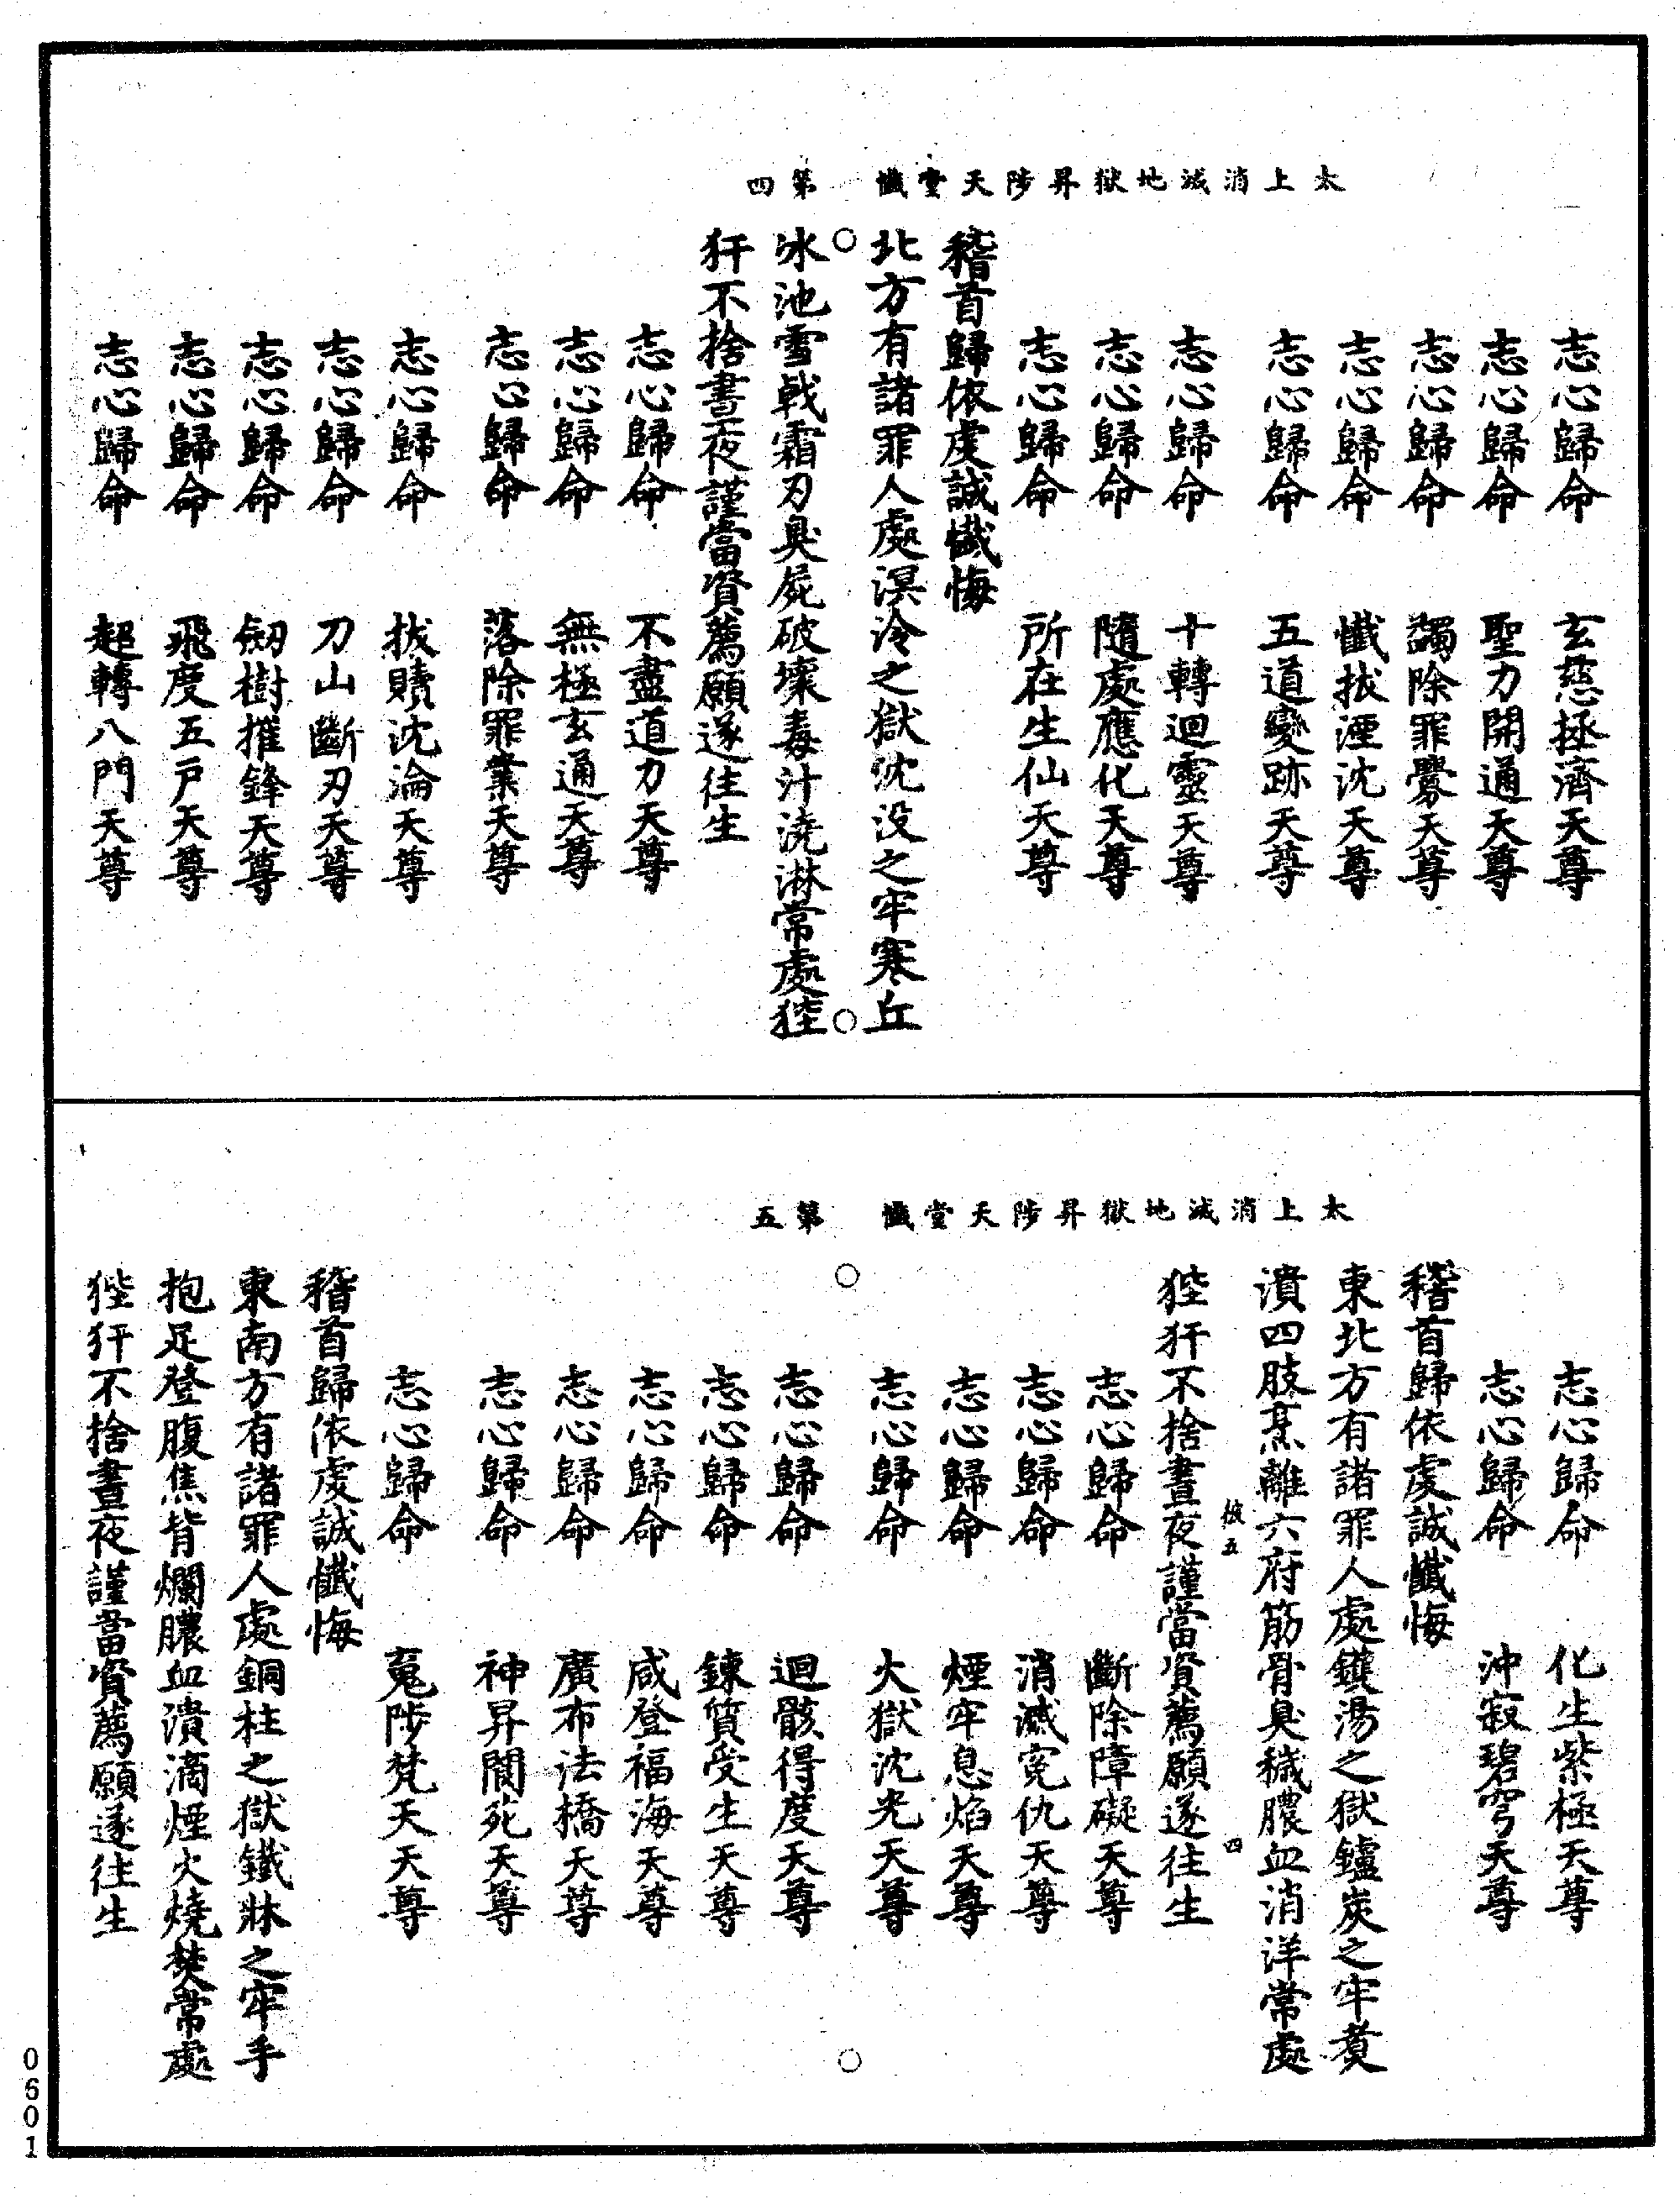 太上消滅地獄昇陟天堂懺　第四
志心歸命　玄慈拯濟天尊
志心歸命　聖力開通天尊
志心歸命　蠲除罪釁天尊
志心歸命　懺拔湮沈天尊
志心歸命　五道變跡天尊
志心歸命　十轉迴靈天尊
志心歸命　隨處應化天尊
志心歸命　所在生仙天尊
稽首歸依虔誠懺悔
北方有諸罪人處溟泠之獄沈没之牢寒丘
冰池雪戟霜刃臭屍破壞毒汁澆淋常處狴
犴不捨晝夜謹當資薦願遂往生
志心歸命　不盡道力天尊
志心歸命　無極玄通天尊
志心歸命　落除罪業天尊
志心歸命　拔贖沈淪天尊
志心歸命　刀山斷刃天尊
志心歸命　劒樹摧鋒天尊
志心歸命　飛度五戸天尊
志心歸命　超轉八門天尊
太上消滅地獄昇陟天堂懺　第五
志心歸命　化生紫極天尊
志心歸命　沖寂碧穹天尊
稽首歸依虔誠懺悔
東北方有諸罪人處鑊湯之獄鑪炭之牢煑
潰四肢烹離六府筋骨臭穢膿血消洋常處
四
狴犴不捨晝夜謹當資薦願遂往生
志心歸命　斷除障礙天尊
志心歸命　消滅寃仇天尊
志心歸命　煙牢息焰天尊
志心歸命　火獄沈光天尊
志心歸命　迴骸得度天尊
志心歸命　鍊質受生天尊
志心歸命　咸登福海天尊
志心歸命　廣布法橋天尊
志心歸命　神昇閬苑天尊
志心歸命　䰟陟梵天天尊
稽首歸依虔誠懺悔
東南方有諸罪人處銅柱之獄鐵牀之牢手
抱足登腹焦背爛膿血潰滴煙火燒焚常處
狴犴不捨晝夜謹當資薦願遂往生
0601